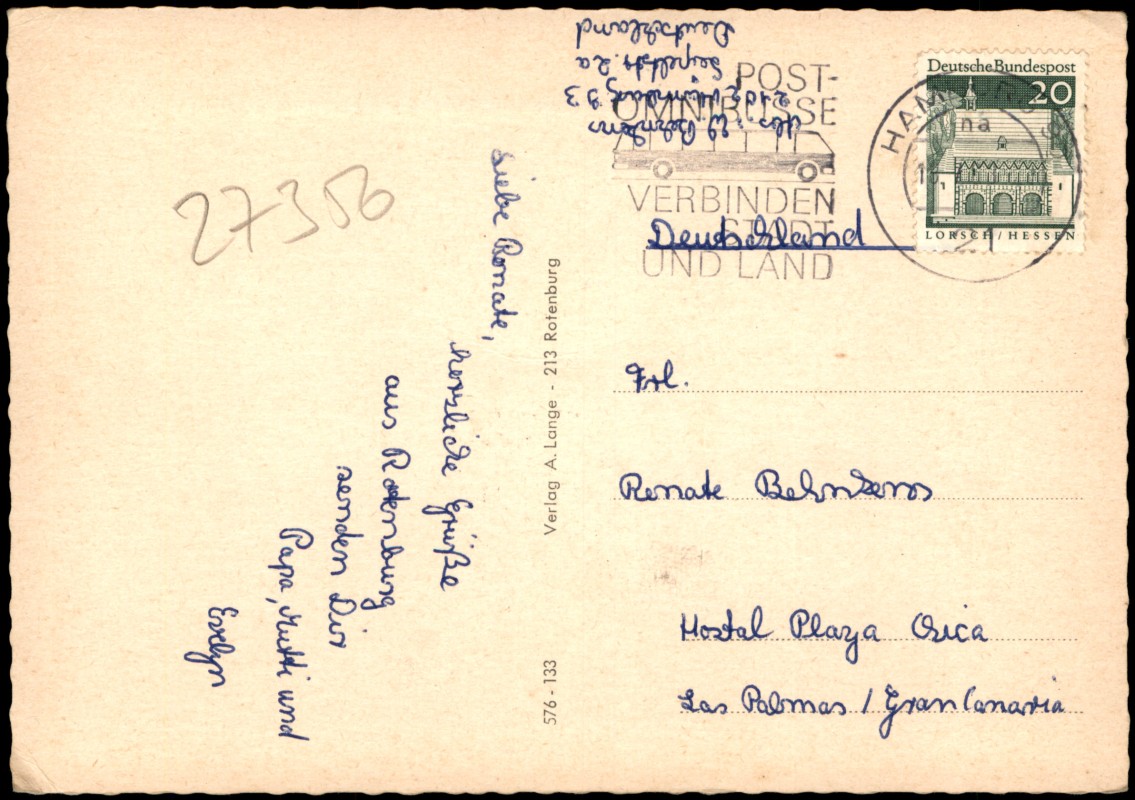 Deutsche Bundespost
20
LORSCH / HESSEN
HAMBURG
POST-
OMNIBUSSE
VERBINDEN
STADT
UND LAND
Abs.: Behnkens
2102 Hamburg 93
2 a
Deutschland
Deutschland
27356
Liebe Renate,
herzliche Grüße
aus Rotenburg
senden Dir
Papa, Mutti und
Evelyn
Verlag A. Lange - 213 Rotenburg
576 - 133
Frl.
Renate Behnkens
Hostal Plaza
Las Palmas / Gran Canaria